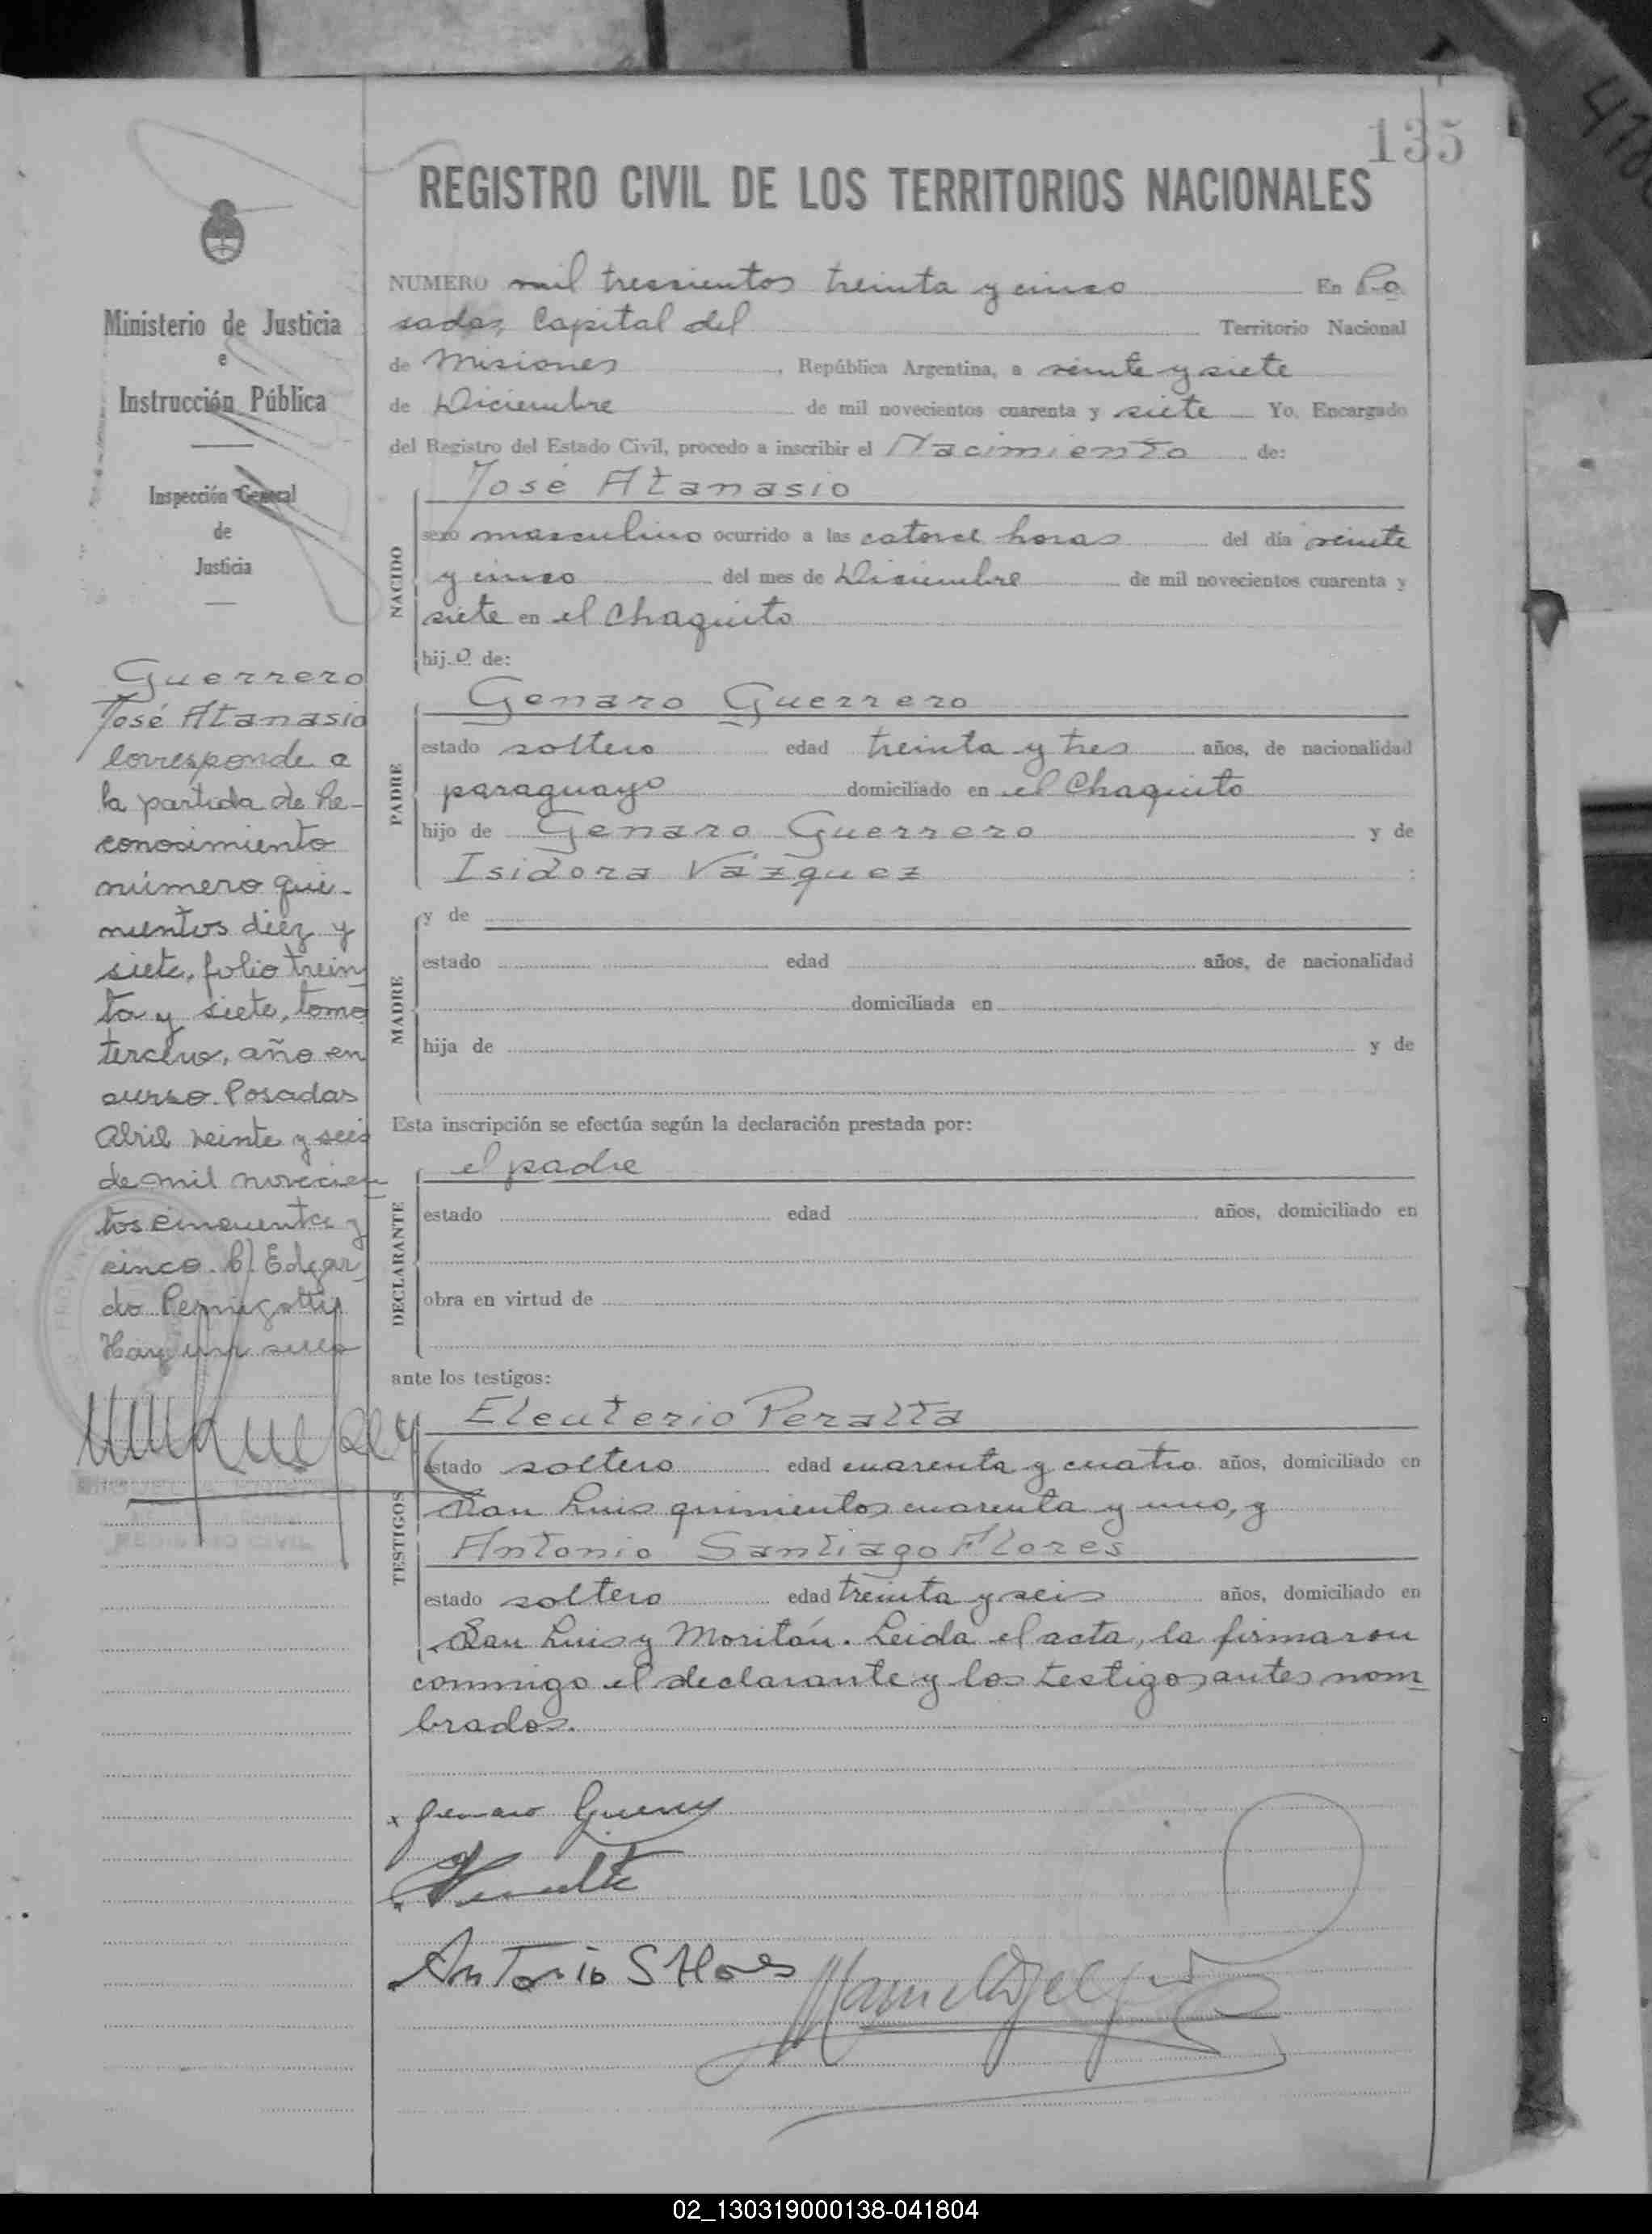 135
REGISTRO CIVIL DE LOS TERRITORIOS NACIONALES
NUMERO mil tressientos treinta y cinco En Po
sadas, Capital del Territorio Nacional
de Misiones, República Argentina, a veinte y siete
de Diciembre de mil novecientos cuarenta y siete Yo, Encargado
del Registro del Estado Civil, procedo a inscribir el Nacimiento de:
José Atanasio
NACIDO
sexo masculino ocurrido a las catorce horas del día veinte
y cinco del mes de Diciembre de mil novecientos cuarenta y
siete en el Chaquito
hijo de:
Genaro Guerrero
PADRE
estado soltero edad treinta y tres años, de nacionalidad
paraguayo domiciliado en el Chaquito
hijo de Genaro Guerrero y de
Isidora Vázquez
MADRE
y de
estado edad años, de nacionalidad
domiciliada en
hija de y de
Esta inscripción se efectúa según la declaración prestada por:
el padre
DECLARANTE
estado edad años, domiciliado en
obra en virtud de
ante los testigos:
Eleuterio Peralta
TESTIGOS
estado soltero edad cuarenta y cuatro años, domiciliado en
San Luis quinientos cuarenta y uno, y
Antonio Santiago Flores
estado soltero edad treinta y seis años, domiciliado en
San Luis y Moritán. Leida el acta, la firmaron
conmigo el declarante y los testigos antes nom
brados.
x Genaro
Antonio S Flores
Ministerio de Justicia
e
Instrucción Pública
Inspección General
de
Justicia
Guerrero
José Atanasio
Corresponde a
la partida de Re-
conocimiento
número qui-
nientos diez y
siete, folio trein
ta y siete, tomo
tercero, año en
curso. Posadas
Abril veinte y seis
de mil novecien
tos cincuenta y
cinco. Edgar
do
Hay un sello
REGISTRO CIVIL
02_130319000138-041804